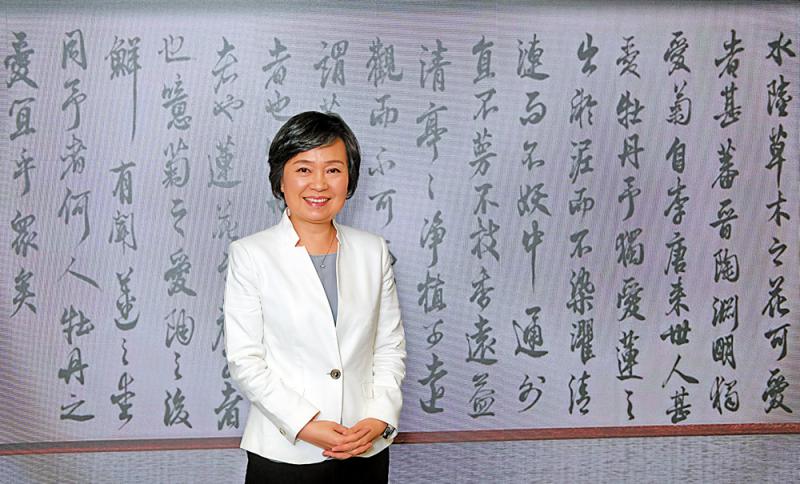 水陸草木之花可愛
者甚蕃晉陶淵明獨
愛菊自李唐來世人甚
愛牡丹予獨愛蓮之
出淤泥而不染濯清
漣而不妖中通外
直不蔓不枝香遠益
清亭〻淨植可遠
觀而不可
謂
者也
者也蓮花之君者
也噫菊之愛陶之後
鮮有聞蓮之愛
同予者何人牡丹之
愛宜乎眾矣